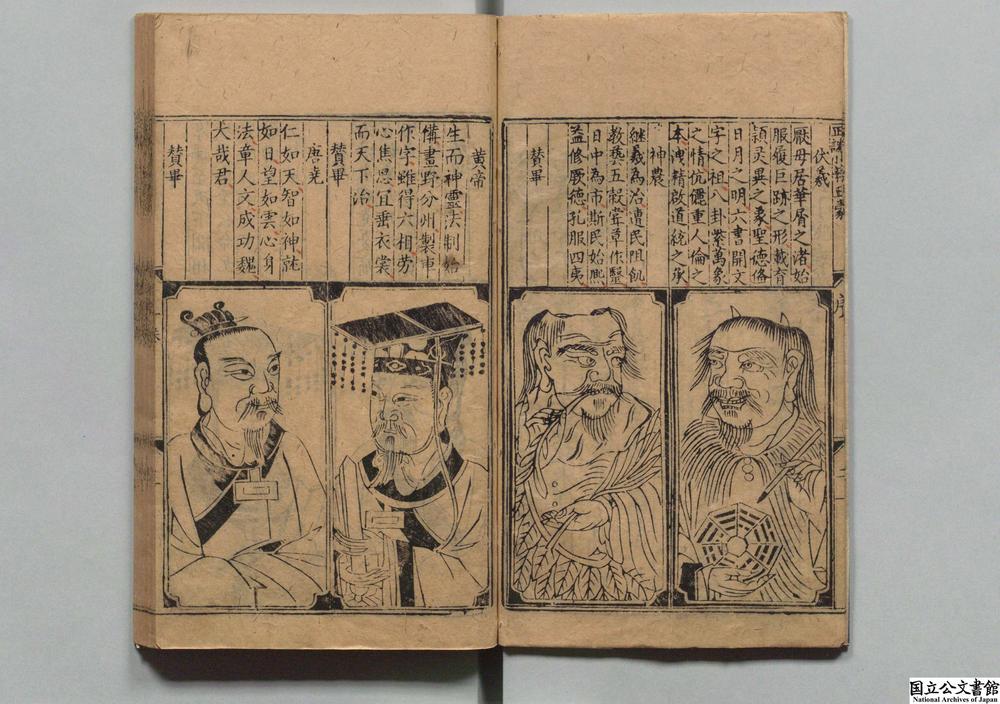 伏羲
厥母居華胥之渚始
服履巨跡之形載育
頴灵異之象聖德侔
日月之明六書開文
字之祖八卦紫萬象
之情伉儷重人倫之
本洩精啟道統之承
神農
継羲為治遭民阻飢
教藝五穀嘗草作醫
日中為市斯民始熈
益修厥德孔服四夷
贊畢
序
黄帝
生而神靈法制始
備畫野分州製車
作字雖得六相劳
心焦思宜垂衣裳
而天下治
贊畢
唐堯
仁如天智如神就
如日望如雲心身
法章人文成功巍
大哉君
贊畢
国立公文書館
National Archives of Japan